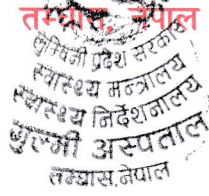 तम्घास, नेपाल
लुम्बिनी प्रदेश सरकार
स्वास्थ्य मन्त्रालय
स्वास्थ्य निर्देशनालय
गुल्मी अस्पताल
तम्घास,नेपाल